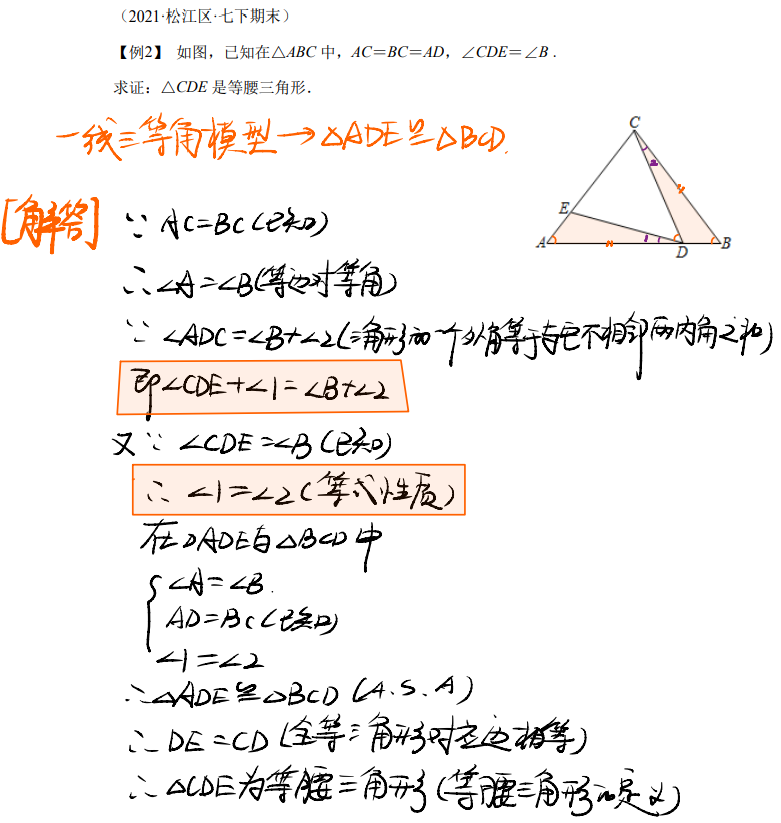 （2021·松江区·七下期末）
【例2】 如图，已知在△ABC 中，AC＝BC＝AD，∠CDE＝∠B．
求证：△CDE 是等腰三角形．
一线三等角模型→△ADE≌△BCD.
C
2
E
1
A
D
B
[解答] ∵ AC=BC (已知)
∴ ∠A=∠B(等边对等角)
∵ ∠ADC=∠B+∠2(三角形的一个外角等于与它不相邻两内角之和)
即∠CDE+∠1=∠B+∠2
又∵ ∠CDE=∠B (已知)
∴ ∠1=∠2 (等式性质)
在△ADE与△BCD中
∠A=∠B.
AD=BC (已知)
∠1=∠2
∴△ADE≌△BCD (A.S.A)
∴ DE=CD (全等三角形对应边相等)
∴ △CDE为等腰三角形 (等腰三角形的定义)